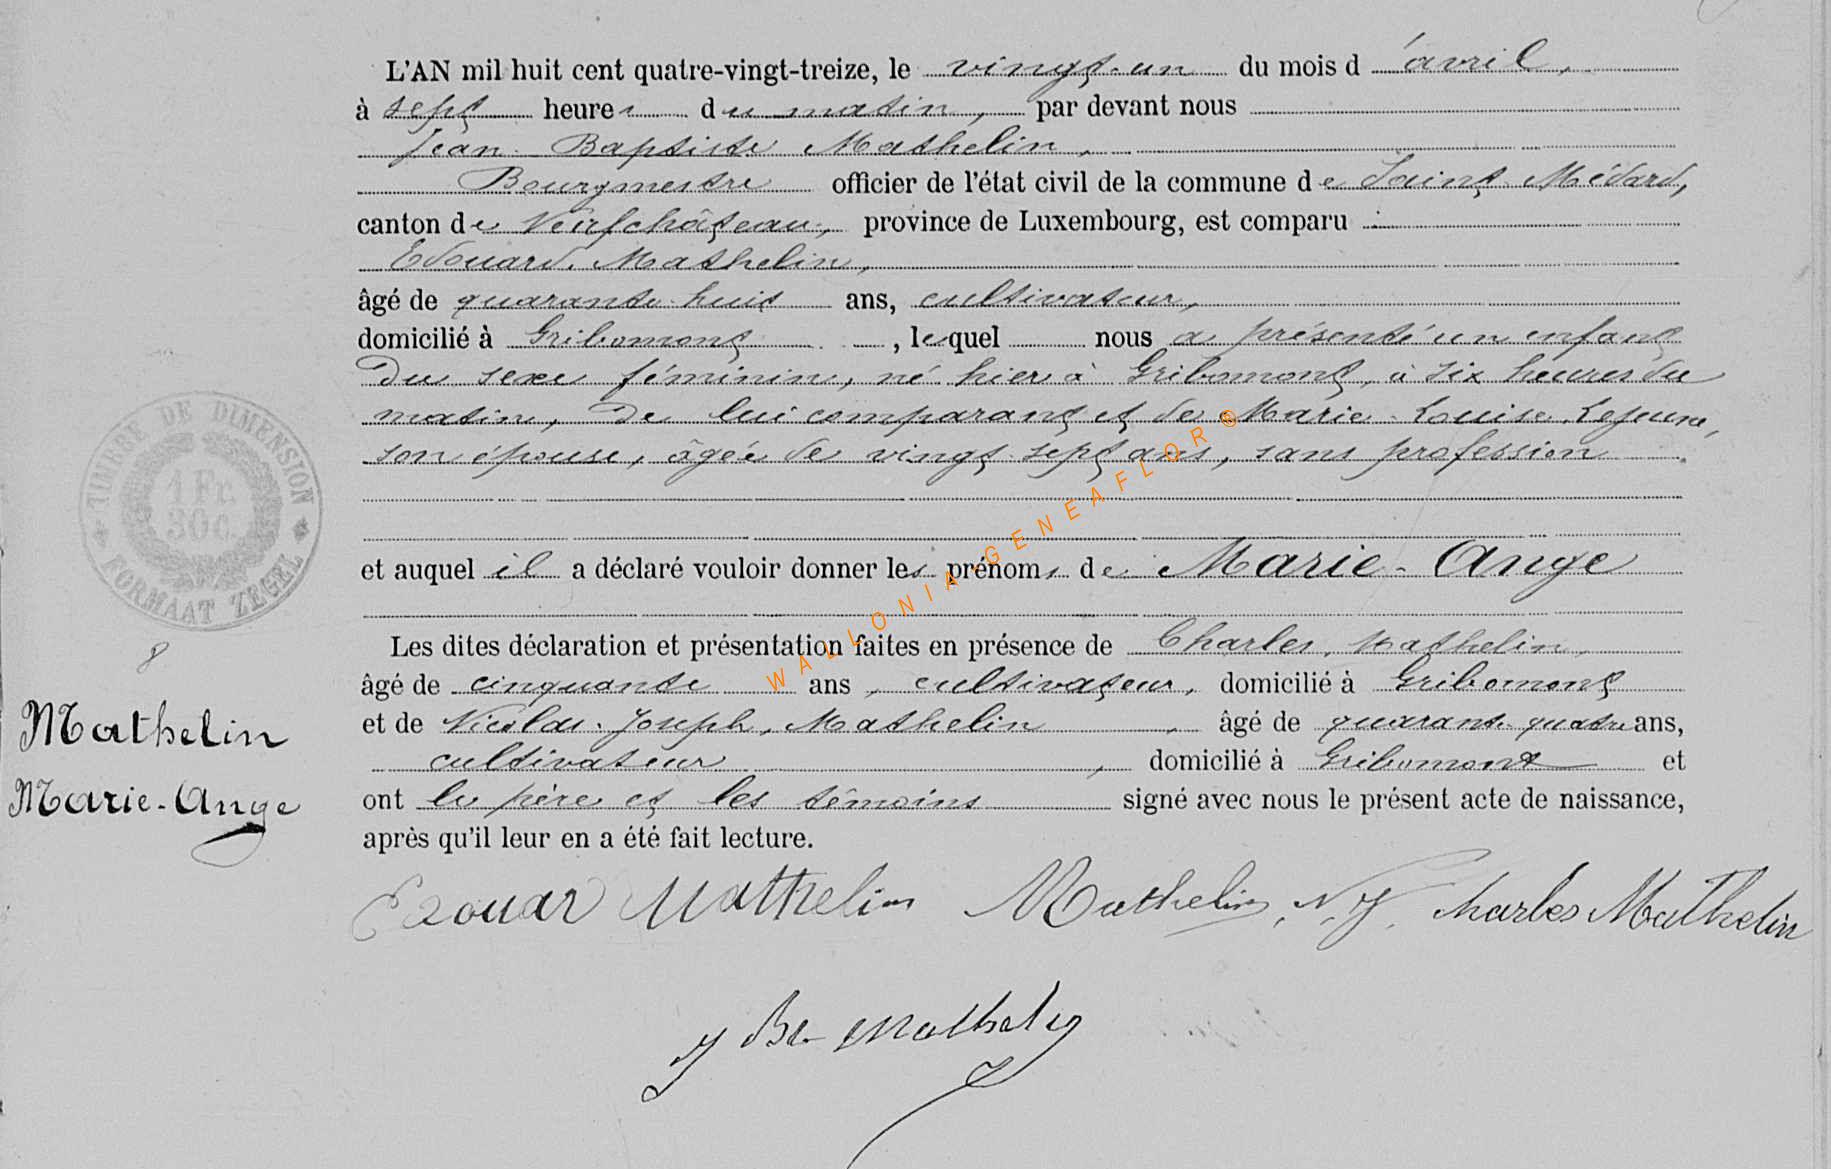 L'AN mil huit cent quatre-vingt-treize, le vingt-un du mois d'avril,
à sept heures du matin, par devant nous
Jean Baptiste Mathelin,
Bourgmestre officier de l'état civil de la commune de Saint-Médard,
canton de Neufchâteau, province de Luxembourg, est comparu :
Edouard Mathelin,
âgé de quarante-huit ans, cultivateur,
domicilié à Gribomont, lequel nous a présenté un enfant
du sexe féminin, né hier à Gribomont, à six heures du
matin, de lui comparant et de Marie-Louise Lejeune,
son épouse, âgée de vingt-sept ans, sans profession.
et auquel il a déclaré vouloir donner les prénoms de Marie-Ange
Les dites déclaration et présentation faites en présence de Charles Mathelin,
âgé de cinquante ans, cultivateur, domicilié à Gribomont
et de Nicolas-Joseph Mathelin, âgé de quarante-quatre ans,
cultivateur, domicilié à Gribomont et
ont le père et les témoins signé avec nous le présent acte de naissance,
après qu'il leur en a été fait lecture.
Edouar Mathelin Mathelin, N. J. Charles Mathelin
J Bte Mathelin
TIMBRE DE DIMENSION
1 Fr.
30 c.
FORMAAT ZEGEL
8
Mathelin
Marie-Ange
WALLONIA-GENEAFLOR®